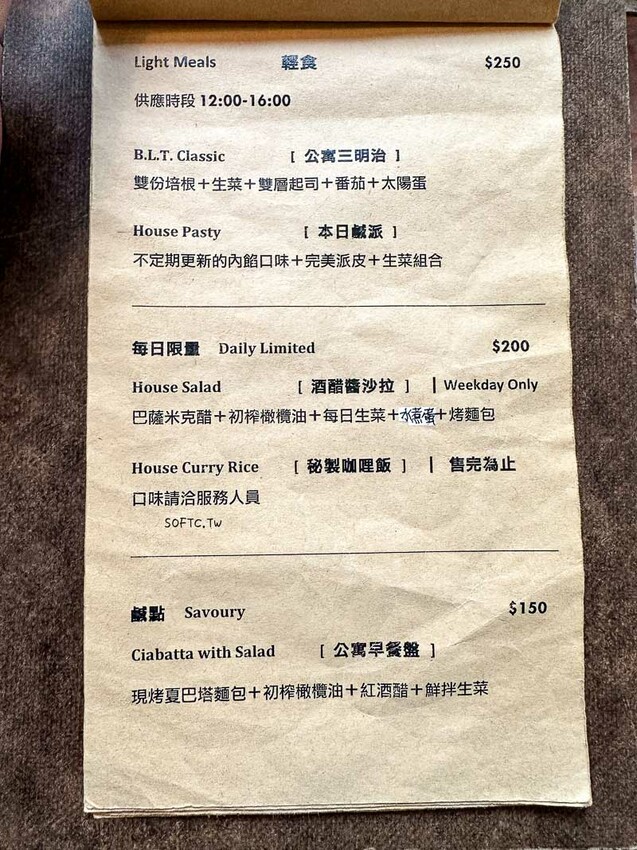 Light Meals 輕食 $250
供應時段 12:00-16:00
B.L.T. Classic [ 公寓三明治 ]
雙份培根+生菜+雙層起司+番茄+太陽蛋
House Pasty [ 本日鹹派 ]
不定期更新的內餡口味+完美派皮+生菜組合
每日限量 Daily Limited $200
House Salad [ 酒醋醬沙拉 ] | Weekday Only
巴薩米克醋+初榨橄欖油+每日生菜+水煮蛋+烤麵包
House Curry Rice [ 秘製咖哩飯 ] | 售完為止
口味請洽服務人員
SOFTC.TW
鹹點 Savoury $150
Ciabatta with Salad [ 公寓早餐盤 ]
現烤夏巴塔麵包+初榨橄欖油+紅酒醋+鮮拌生菜